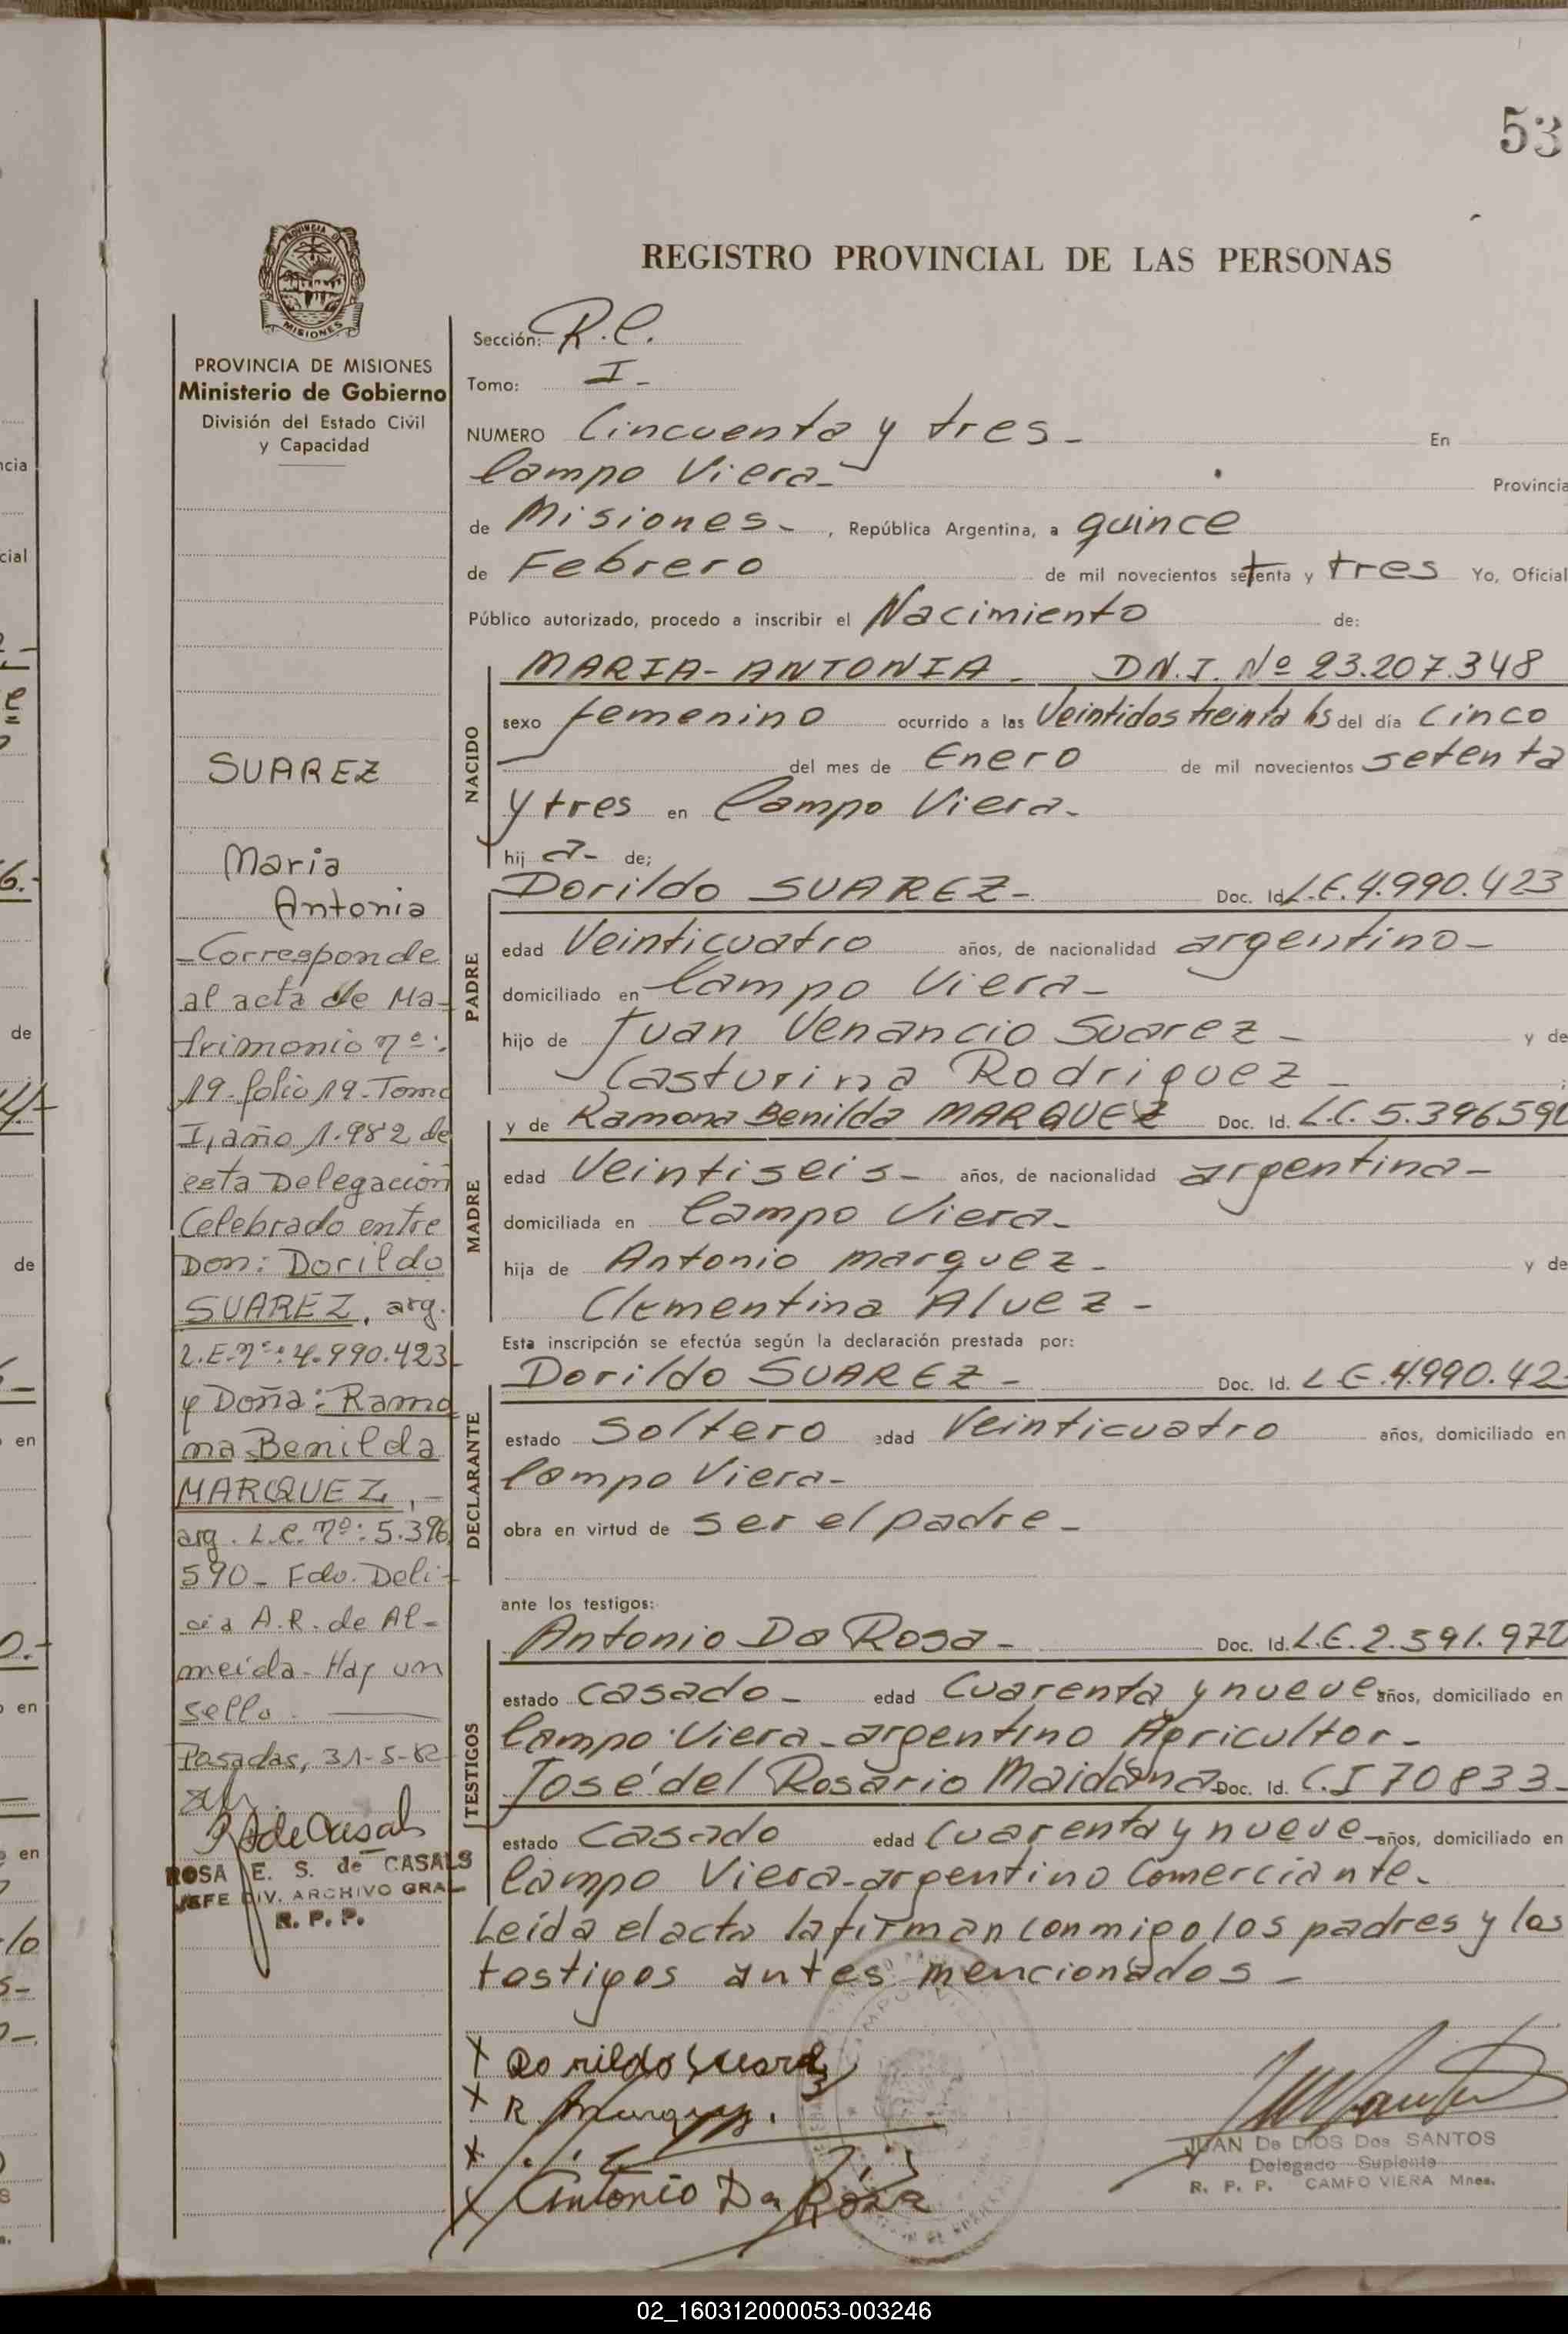 53
REGISTRO PROVINCIAL DE LAS PERSONAS
PROVINCIA DE
MISIONES
PROVINCIA DE MISIONES
Ministerio de Gobierno
División del Estado Civil
y Capacidad
SUAREZ
Maria
Antonia
-Corresponde
al acta de Ma-
trimonio nº:
19-folio 19-Tomo
I, año 1.982 de
esta Delegación
Celebrado entre
Don: Dorildo
SUAREZ, arg.
L.E.nº: 4.990.423
y Doña: Ramo
na Benilda
MARQUEZ,-
arg. L.C. nº: 5.396.
590- Fdo. Deli-
cia A.R. de Al-
meida- Hay un
sello.
Posadas, 31-5-82
ROSA E. S. de CASALS
JEFE DIV. ARCHIVO GRAL
R. P. P.
Sección: R.C.
Tomo: I-
NUMERO Cincuenta y tres- En
Campo Viera- Provincia
de Misiones-, República Argentina, a quince
de Febrero de mil novecientos setenta y tres Yo, Oficial
Público autorizado, procedo a inscribir el Nacimiento de:
NACIDO
MARIA-ANTONIA. DN.I. Nº 23.207.348
sexo femenino ocurrido a las Veintidos treinta hs del día Cinco
del mes de Enero de mil novecientos setenta
y tres en Campo Viera-
hij a- de;
PADRE
Dorildo SUAREZ- Doc. Id. L.E.4.990.423
edad Veinticuatro años, de nacionalidad argentino-
domiciliado en Campo Viera-
hijo de Juan Venancio Suarez- y de
Casturina Rodriguez-
MADRE
y de Ramona Benilda MARQUEZ Doc. Id. L.C. 5.396590
edad Veintiseis- años, de nacionalidad argentina-
domiciliada en Campo Viera-
hija de Antonio marquez- y de
Clementina Alvez-
Esta inscripción se efectúa según la declaración prestada por:
DECLARANTE
Dorildo SUAREZ- Doc. Id. L E.4.990.42
estado Soltero edad Veinticuatro años, domiciliado en
Campo Viera-
obra en virtud de ser el padre-
ante los testigos:
TESTIGOS
Antonio Da Rosa- Doc. Id. L.E.2.591.970
estado Casado- edad Cuarenta y nueve años, domiciliado en
Campo Viera-argentino Agricultor-
José del Rosario Maidana Doc. Id. C.I 70833-
estado Casado edad Cuarenta y nueve- años, domiciliado en
Campo Viera-argentino Comerciante-
Leída el acta la firman conmigo los padres y los
testigos antes mencionados-
x Dorildo Suarez
x R. Marquez.
x
x Antonio Da Roza
JUAN De DIOS Dos SANTOS
Delegado Suplente
R. P. P. CAMPO VIERA Mnes.
02_160312000053-003246